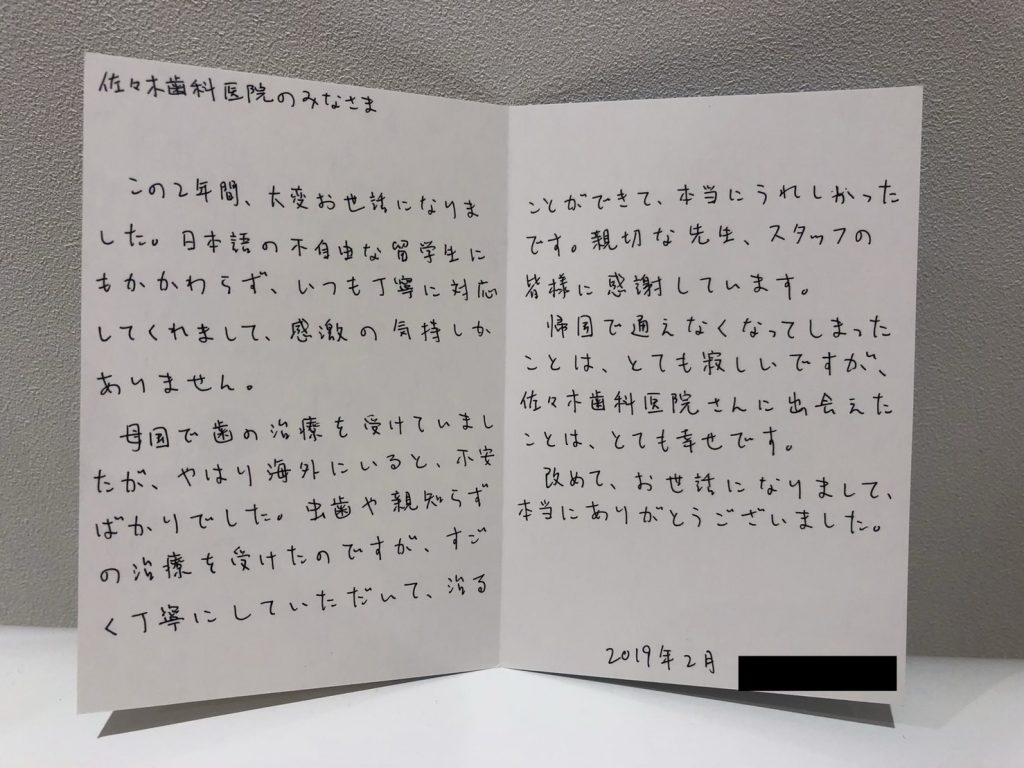 佐々木歯科医院のみなさま
この2年間、大変お世話になりま
した。日本語の不自由な留学生に
もかかわらず、いつも丁寧に対応
してくれまして、感激の気持しか
ありません。
母国で歯の治療を受けていまし
たが、やはり海外にいると、不安
ばかりでした。虫歯や親知らず
の治療を受けたのですが、すご
く丁寧にしていただいて、治る
ことができて、本当にうれしかった
です。親切な先生、スタッフの
皆様に感謝しています。
帰国で通えなくなってしまった
ことは、とても寂しいですが、
佐々木歯科医院さんに出会えた
ことは、とても幸せです。
改めて、お世話になりまして、
本当にありがとうございました。
2019年2月